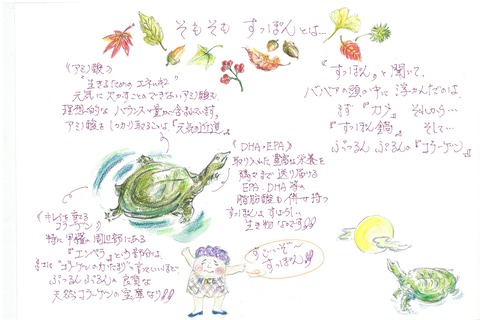 そもそも すっぽんとは…
《アミノ酸》
生きるための エネルギー
元気に欠かすことのできないアミノ酸を
理想的な バランスで豊富に含んでいます。
アミノ酸を しっかり取ることは、『元気の近道』
『すっぽん』と聞いて、
ババアの頭の中に 浮かんだのは
まず『カメ』 それから…
『すっぽん鍋』 そして…
ぷっるん ぷるんの『コラーゲン』
《DHA・EPA》
取り入れた 豊富な栄養を
隅々まで送り届ける
EPA・DHA等の
脂肪酸も 併せ持つ
すっぽんは すばらしい
生き物なです!!
《キレイを支える
コラーゲン》
特に 甲羅の 周辺部にある
『エンペラ』という部分は、
まさに"コラーゲンのかたまり"すっていいほどで
ぷっるん ぷるんの 良質な
天然コラーゲンの宝庫なり!!
すっごいぞ〜
すっぽん!!